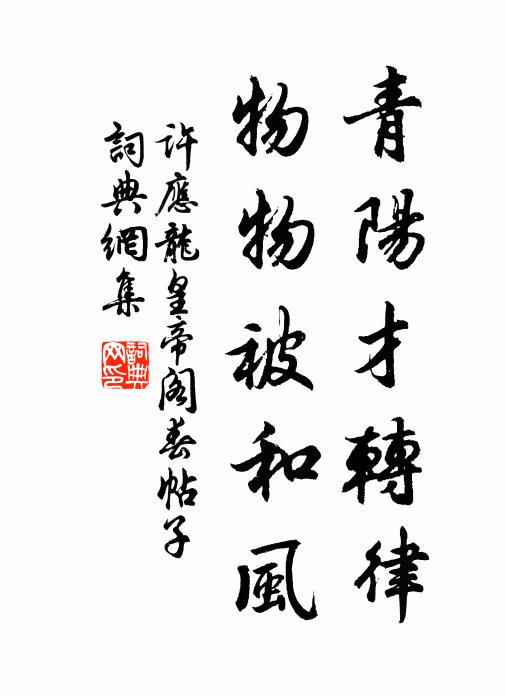 青陽才轉律
物物被和風
許應龍皇帝阁春帖子
詞典網集
詞典
网印